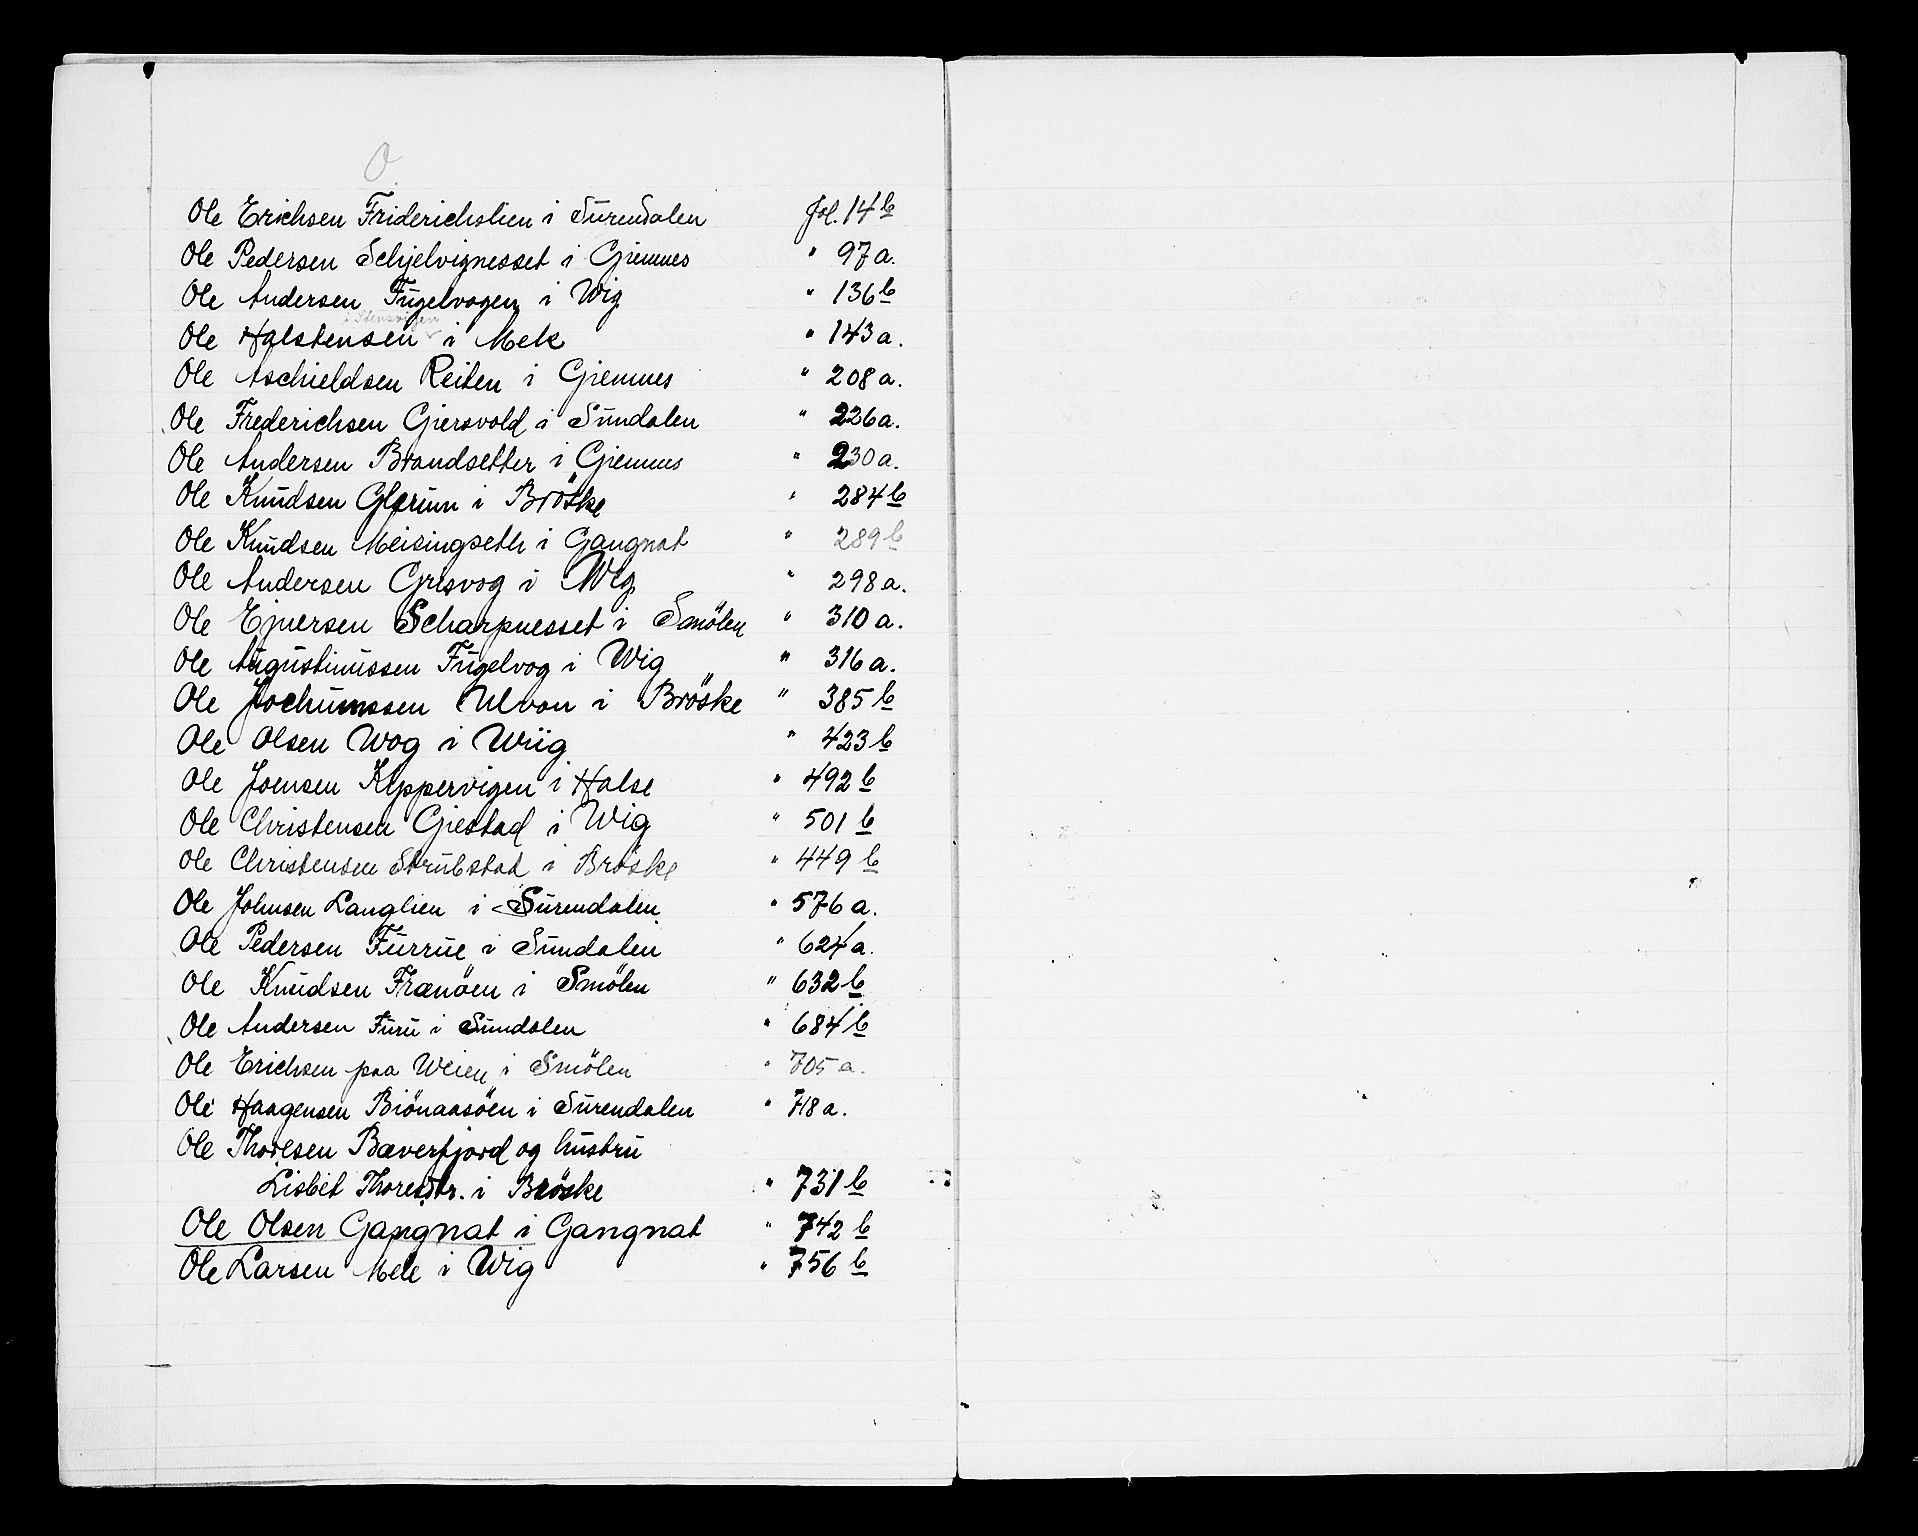 O
Ole Erichsen Friderichslien i Surendalen fol. 14 b
Ole Pedersen Schjelvignesset i Giemnes " 97 a.
Ole Andersen Fugelvogen i Wig " 136 b
i Stensvigen
Ole Halstensen i Mek " 143 a.
Ole Aschieldsen Reiten i Giemnes " 208 a.
Ole Frederichsen Giersvold i Sundalen " 226 a.
Ole Andersen Brandsetter i Giemnes " 230 a.
Ole Knudsen Glærum i Bröske " 284 b
Ole Knudsen Meisingseth i Gangnat " 289 b
Ole Andersen Grisvog i Wig " 298 a.
Ole Ejnersen Scharpnesset i Smölen " 310 a.
Ole Augustinussen Fugelvog i Wig " 316 a.
Ole Jochumssen Ulvan i Bröske " 385 b
Ole Olsen Wog i Wiig " 423 b
Ole Joensen Kyppervigen i Halse " 492 b
Ole Christensen Giestad i Wig " 501 b
Ole Christensen Strubstad i Bröske " 449 b
Ole Johnsen Langlien i Surendalen " 576 a.
Ole Pedersen Furrue i Sundalen " 624 a.
Ole Knudsen Frænöen i Smölen " 632 b
Ole Andersen Furu i Sundalen " 684 b
Ole Erichsen paa Weien i Smölen " 705 a.
Ole Haagensen Biönaasöen i Surendalen " 718 a.
Ole Thoresen Bæverfjord og hustru
Lisbet Thoresdtr. i Bröske " 731 b
Ole Olsen Gangnat i Gangnat " 742 b
Ole Larsen Mele i Wig " 756 b